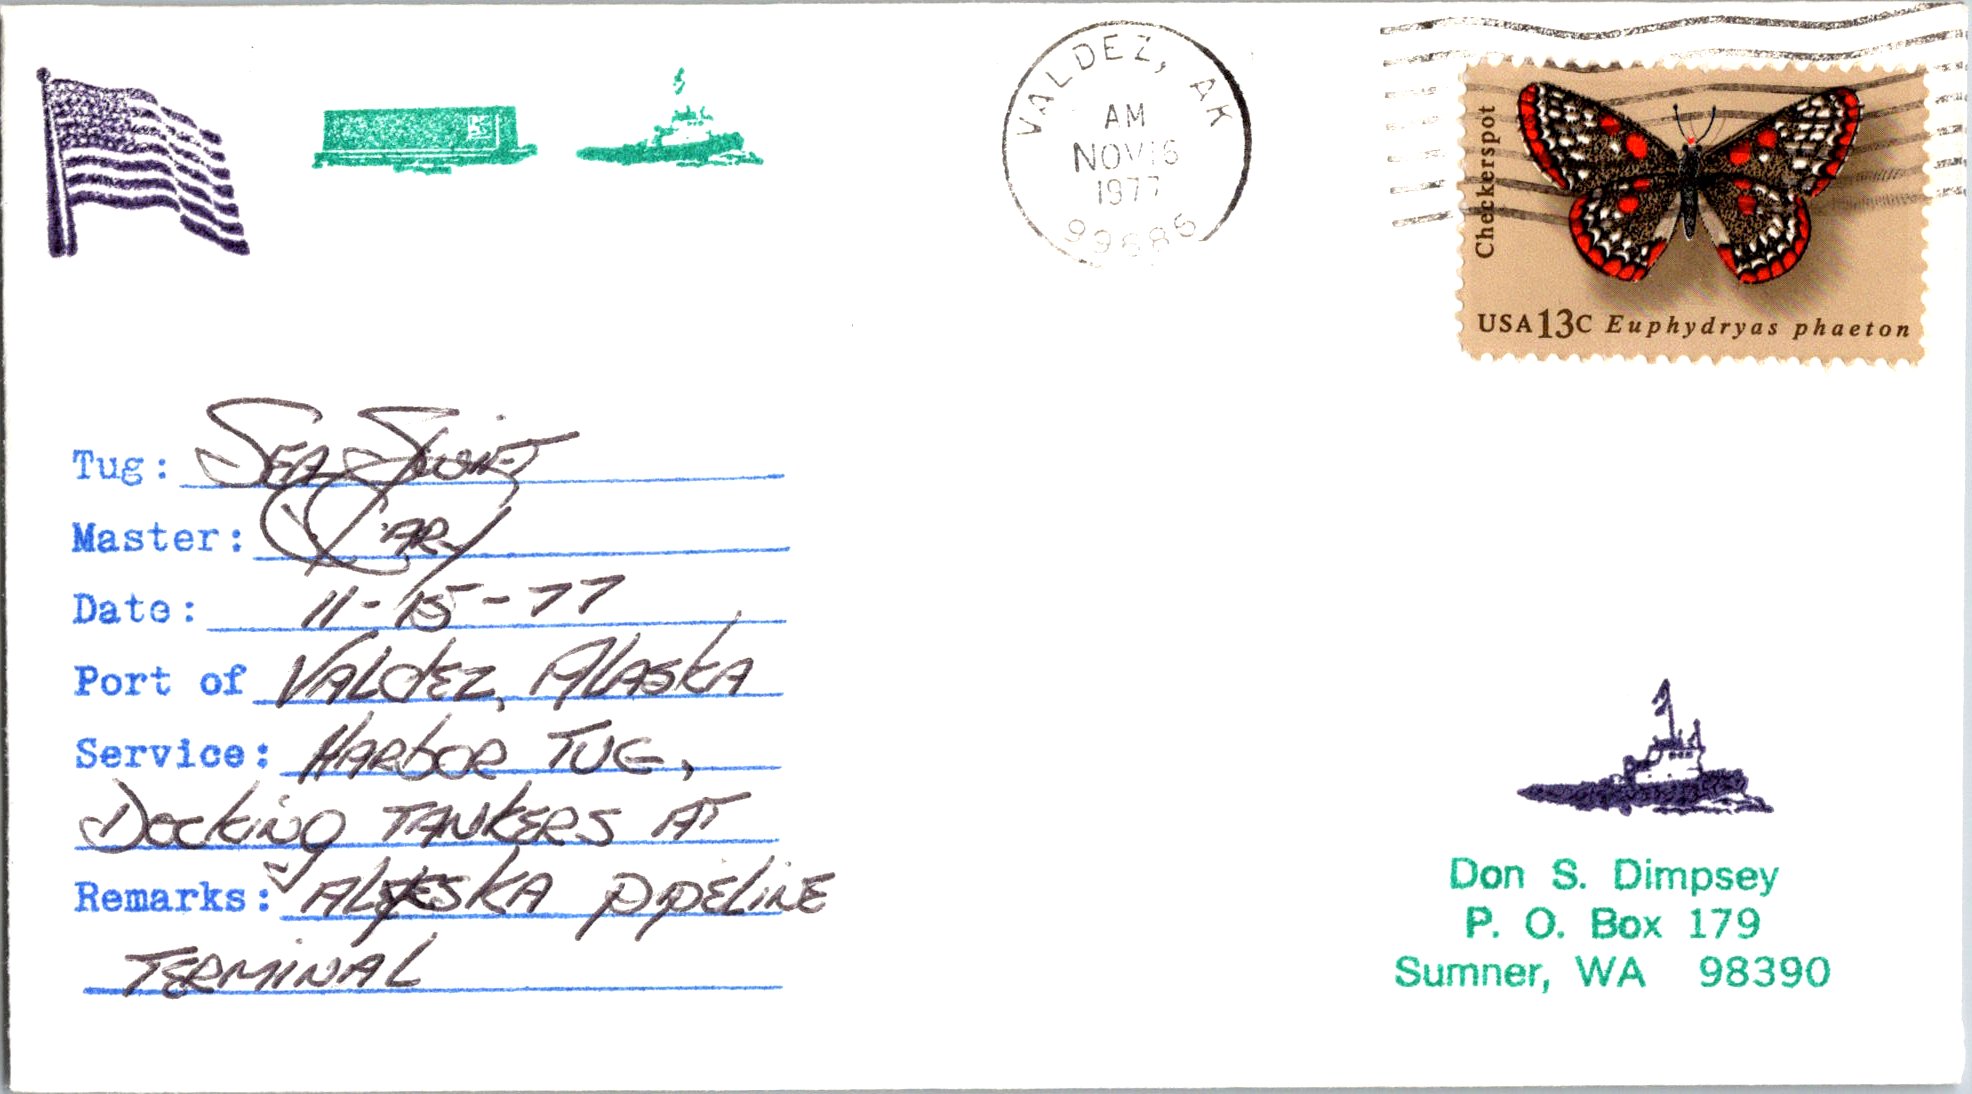 VALDEZ, AK
AM
NOV 16
1977
99686
Checkerspot
USA 13C Euphydryas phaeton
Tug: SEA SWIFT
Master:
Date: 11-15-77
Port of VALdEZ, ALASKA
Service: HARbOR TUG,
DOCkiNg TANKERS AT
Remarks: ALYESKA PIPELINE
TERMINAL
Don S. Dimpsey
P. O. Box 179
Sumner, WA 98390